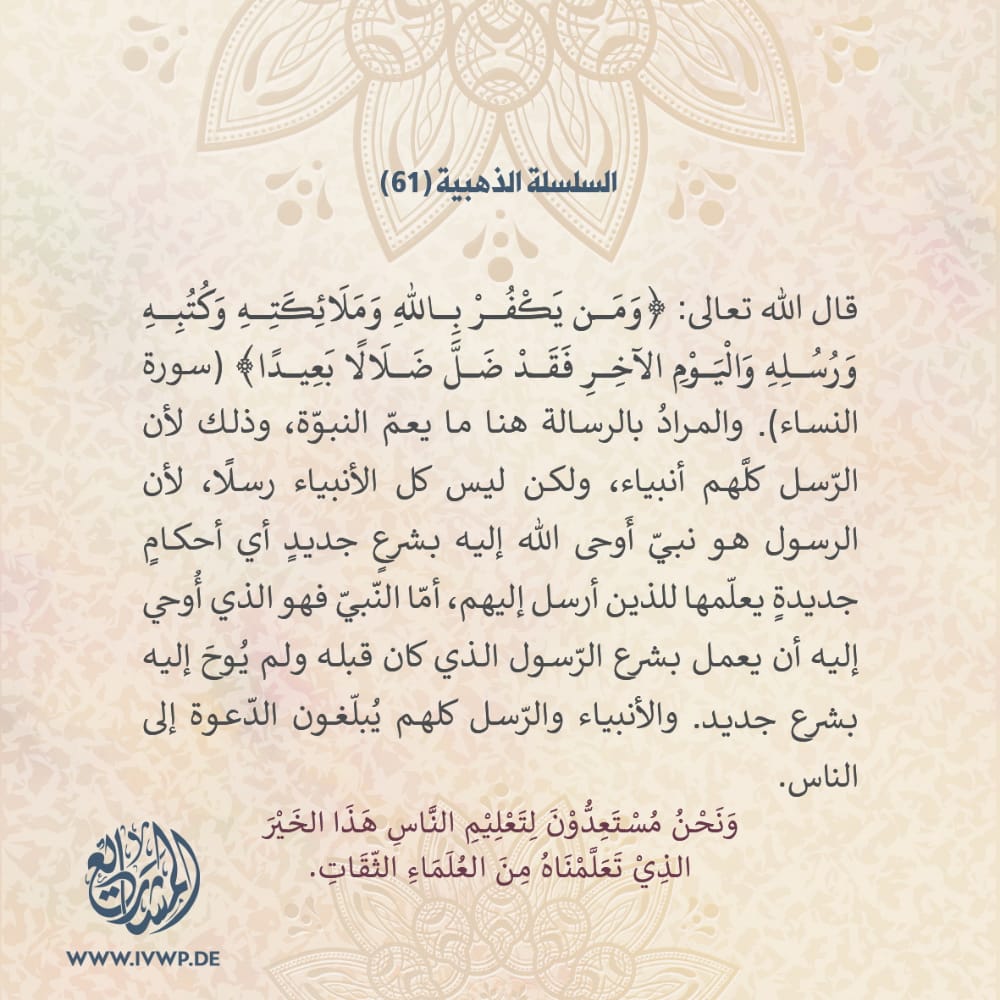 السلسلة الذهبية (61)
قال الله تعالى: ﴿وَمَـن يَكْفُـرْ بِـاللهِ وَمَلَائِكَتِـهِ وَكُتُبِـهِ
وَرُسُـلِهِ وَالْيَـوْمِ الآخِـرِ فَقَـدْ ضَـلَّ ضَـلَالًا بَعِيـدًا﴾ (سورة
النساء). والمرادُ بالرسالة هنا ما يعمّ النبوّة، وذلك لأن
الرّسل كلَّهم أنبياء، ولكن ليس كل الأنبياء رسلًا، لأن
الرسول هو نبيّ أَوحى الله إليه بشرعٍ جديدٍ أي أحكامٍ
جديدةٍ يعلّمها للذين أرسل إليهم، أمّا النّبيّ فهو الذي أُوحي
إليه أن يعمل بشرع الرّسول الذي كان قبله ولم يُوحَ إليه
بشرع جديد. والأنبياء والرّسل كلهم يُبلّغون الدّعوة إلى
الناس.
وَنَحْنُ مُسْتَعِدُّوْنَ لِتَعْلِيْمِ النَّاسِ هَذَا الخَيْرَ
الذِيْ تَعَلَّمْنَاهُ مِنَ العُلَمَاءِ الثّقَاتِ.
WWW.IVWP.DE